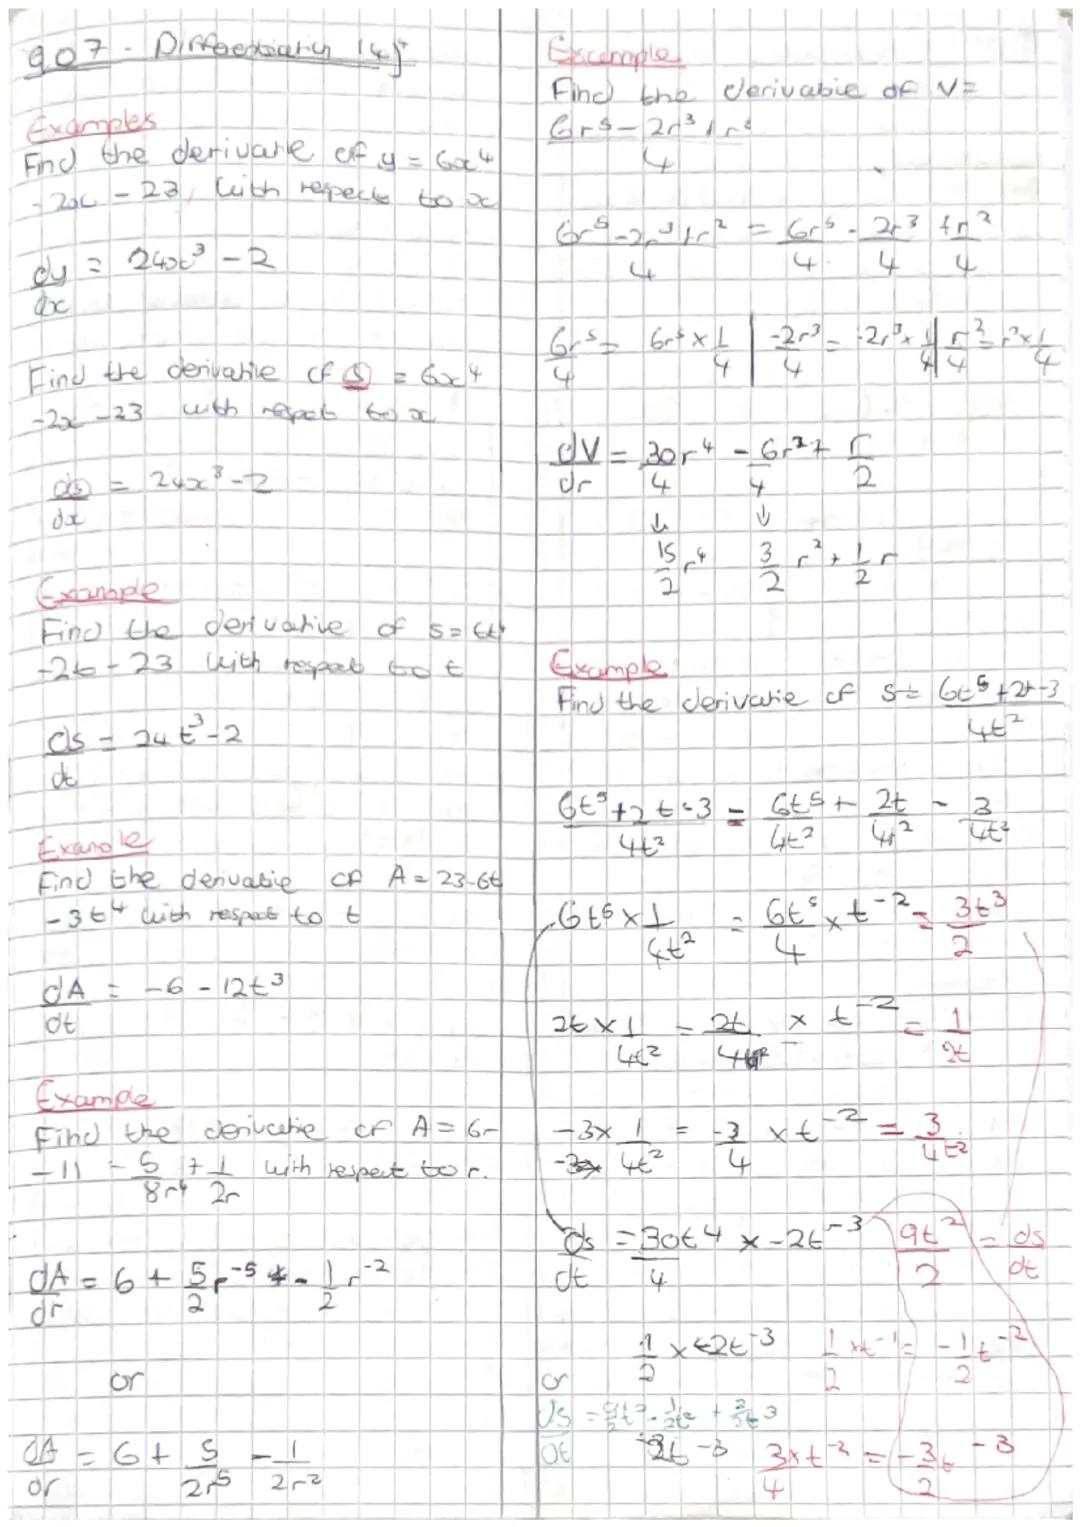 907 - Differentiation (4)
Examples
Find the derivative of y = 6x⁴
- 2x - 23, with respect to x
dy/dx = 24x³ - 2
Find the derivative of S = 6x⁴
-2x - 23 with respect to x
ds/dx = 24x³ - 2
Example
Find the derivative of s = 6t⁴
-2t - 23 with respect to t
ds/dt = 24t³ - 2
Example
Find the derivative of A = 23-6t
-3t⁴ with respect to t
dA/dt = -6 - 12t³
Example
Find the derivative of A = 6r
-11 - 5/8r⁴ + 1/2r with respect to r.
dA/dr = 6 + 5/2 r⁻⁵ - 1/2 r⁻²
or
dA/dr = 6 + 5/2r⁵ - 1/2r²
Example
Find the derivative of V =
6r⁵ - 2r³ + r²/4
6r⁵ - 2r³ + r²/4 = 6r⁵/4 - 2r³/4 + r²/4
6r⁵/4 = 6r⁵ × 1/4 | -2r³/4 = -2r³ × 1/4 | r²/4 = r² × 1/4
dV/dr = 30r⁴/4 - 6r²/4 + r/2
↓ ↓
15/2 r⁴ 3/2 r² + 1/2 r
Example
Find the derivative of s = 6t⁵+2t-3/4t²
6t⁵+2t-3/4t² = 6t⁵/4t² + 2t/4t² - 3/4t²
6t⁵ × 1/4t² = 6t⁵/4 × t⁻² = 3t³/2
2t × 1/4t² = 2t/4 × t⁻² = 1/2t
-3 × 1/4t² = -3/4 × t⁻² = 3/4t²
ds/dt = 30t⁴/4 × -2t⁻³ 9t²/2 = ds/dt
1/2 × -2t⁻³ 1/2 × t⁻¹ = -1/2 t⁻²
or
ds/dt = 9/2 t² - 1/2t² + 3/2t³
-2t⁻³ 3/4 × t⁻² = -3/2 t⁻³